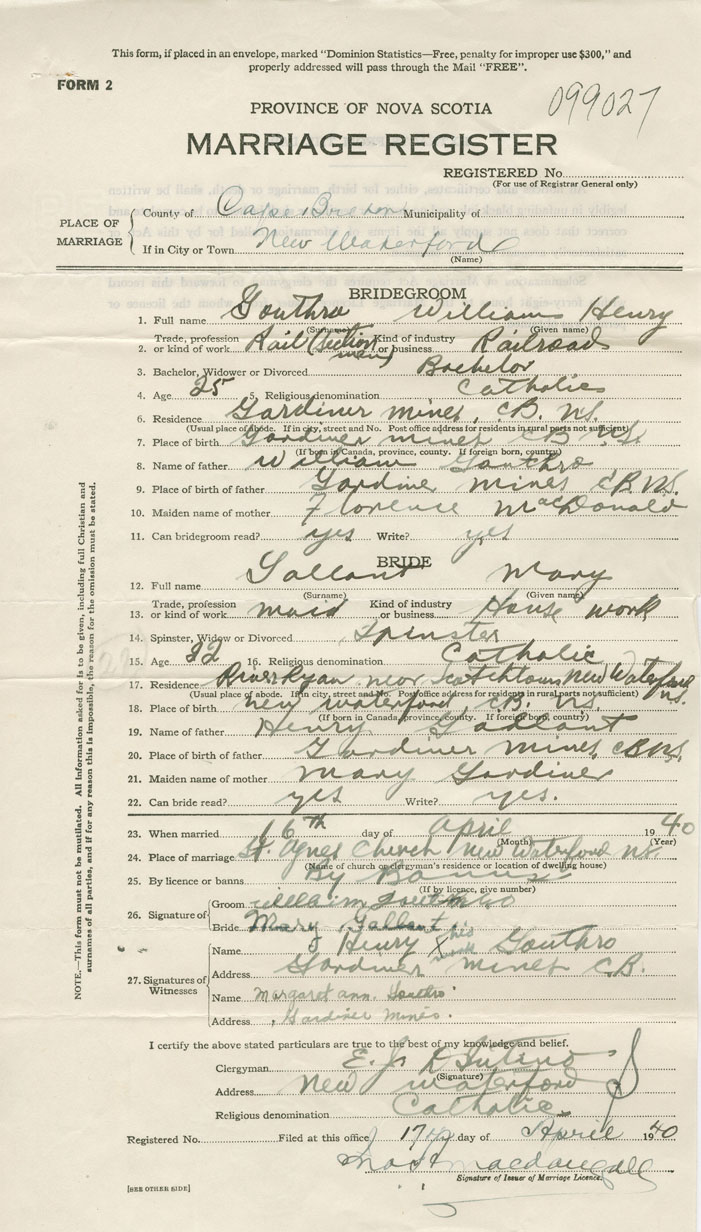 This form, if placed in an envelope, marked "Dominion Statistics—Free, penalty for improper use $300," and
properly addressed will pass through the Mail "FREE".
FORM 2
099027
PROVINCE OF NOVA SCOTIA
MARRIAGE REGISTER
REGISTERED No.
(For use of Registrar General only)
PLACE OF MARRIAGE
County of Cape Breton Municipality of
If in City or Town New Waterford
(Name)
BRIDEGROOM
1. Full name Gouthro William Henry
(Surname) (Given name)
2. Trade, profession or kind of work Rail (Section man) Kind of industry or business Railroad
3. Bachelor, Widower or Divorced Bachelor
4. Age 25 5. Religious denomination Catholic
6. Residence Gardiner mines, C.B. N.S.
(Usual place of abode. If in city, street and No. Post office address for residents in rural parts not sufficient)
7. Place of birth Gardiner mines C.B. N.S.
(If born in Canada, province, county. If foreign born, country)
8. Name of father William Gouthro
9. Place of birth of father Gardiner mines C.B. N.S.
10. Maiden name of mother Florence MacDonald
11. Can bridegroom read? yes Write? yes
BRIDE
12. Full name Gallant Mary
(Surname) (Given name)
13. Trade, profession or kind of work maid Kind of industry or business House work
14. Spinster, Widow or Divorced Spinster
15. Age 22 16. Religious denomination Catholic
17. Residence River Ryan near Scotchtown New Waterford N.S.
(Usual place of abode. If in city, street and No. Post office address for residents in rural parts not sufficient)
18. Place of birth New Waterford, C.B. N.S.
(If born in Canada, province, county. If foreign born, country)
19. Name of father Henry Gallant
20. Place of birth of father Gardiner mines C.B. N.S.
21. Maiden name of mother Mary Gardiner
22. Can bride read? yes Write? yes.
23. When married 16th day of April 1940
(Month) (Year)
24. Place of marriage St. Agnes Church New Waterford N.S.
(Name of church or clergyman's residence or location of dwelling house)
25. By licence or banns By Banns
(If by licence, give number)
26. Signature of
Groom William Gouthro
Bride Mary Gallant
27. Signatures of Witnesses
Name Henry X Gouthro
his mark
Address Gardiner Mines C.B.
Name Margaret ann. Gouthro
Address Gardiner Mines.
I certify the above stated particulars are true to the best of my knowledge and belief.
Clergyman E. J.
(Signature)
Address New Waterford
Religious denomination Catholic
Registered No. Filed at this office 17th day of April 1940
MacDougall
Signature of Issuer of Marriage Licence.
[SEE OTHER SIDE]
NOTE.—This form must not be mutilated. All information asked for is to be given, including full Christian and
surnames of all parties, and if for any reason this is impossible, the reason for the omission must be stated.